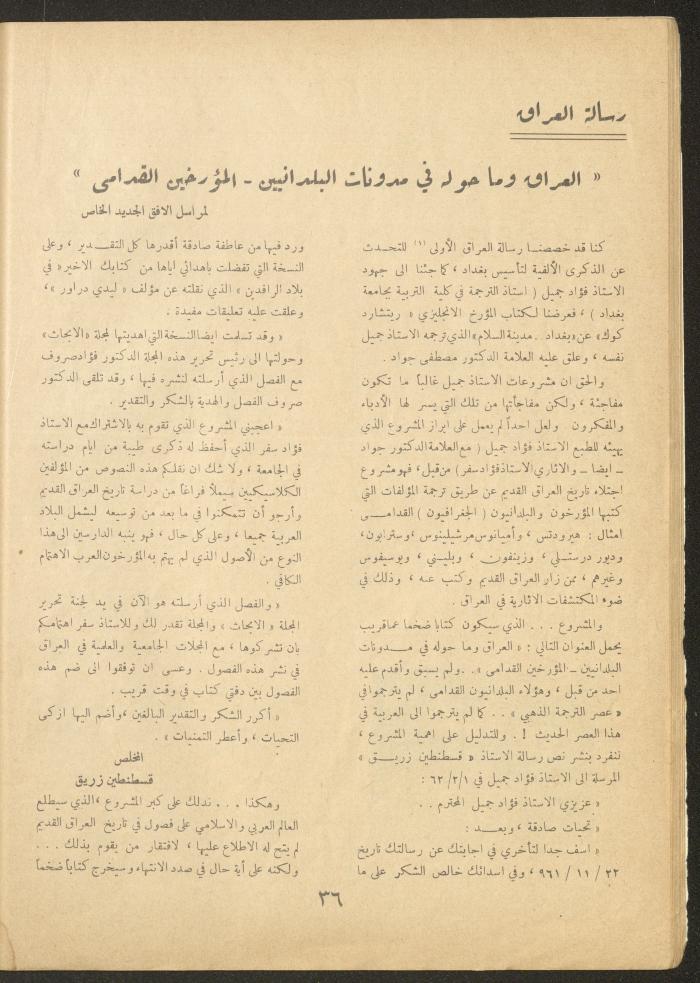 رسالة العراق
« العراق وما حوله في مدونات البلدانيين - المؤرخين القدامى »
لمراسل الافق الجديد الخاص
كنا قد خصصنا رسالة العراق الأولى (١) للتحدث
عن الذكرى الألفية لتأسيس بغداد ، كما جئنا الى جهود
الاستاذ فؤاد جميل ( استاذ الترجمة في كلية التربية بجامعة
بغداد ) ، فعرضنا لكتاب المؤرخ الانجليزي « ريتشارد
كوك» عن«بغداد . مدينة السلام»الذي ترجمه الاستاذ جميل
نفسه ، وعلق عليه العلامة الدكتور مصطفى جواد .
والحق ان مشروعات الاستاذ جميل غالباً ما تكون
مفاجئة ، ولكن مفاجأتها من تلك التي يسر لها الأدباء
والمفكرون . ولعل احداً لم يعمل على ابراز المشروع الذي
يهيئه للطبع الاستاذ فؤاد جميل ( مع العلامة الدكتور جواد
ـ ايضا ـ والاثاري الاستاذ فؤاد سفر) من قبل، فهو مشروع
اجتلاء تاريخ العراق القديم عن طريق ترجمة المؤلفات التي
كتبها المؤرخون والبلدانيون ( الجغرافيون ) القدامى
امثال : هيرودتس ، وأميانوس مرشيلينوس ، وسترابون،
وديور درستلي ، وزينفون ، وبليني ، ويوسيفوس
وغيرهم ، ممن زار العراق القديم وكتب عنه ، وذلك في
ضوء المكتشفات الاثارية في العراق .
والمشروع . . . الذي سيكون كتابا ضخما عما قريب
يحمل العنوان التالي : « العراق وما حوله في مدونات
البلدانيين ـ المؤرخين القدامى » . . ولم يسبق وأقدم عليه
احد من قبل ، وهؤلاء البلدانيون القدامى ، لم يترجموا في
« عصر الترجمة الذهبي » . . كما لم يترجموا الى العربية في
هذا العصر الحديث ! . وللتدليل على اهمية المشروع ،
ننفرد بنشر نص رسالة الاستاذ « قسطنطين زريق »
المرسلة الى الاستاذ فؤاد جميل في ٦٢/٢/١ :
« عزيزي الاستاذ فؤاد جميل المحترم . .
« تحيات صادقة ، وبعد :
« اسف جدا لتأخري في اجابتك عن رسالتك تاريخ
٢٢ / ١١ / ٩٦١ ، وفي اسدائك خالص الشكر على ما
ورد فيها من عاطفة صادقة أقدرها كل التقدير ، وعلى
النسخة التي تفضلت باهدائي اياها من كتابك الاخير« في
بلاد الرافدين » الذي نقلته عن مؤلف « ليدي دراور »،
وعلقت عليه تعليقات مفيدة .
« وقد تسلمت ايضا النسخة التي اهديتها لمجلة «الابحاث»
وحولتها الى رئيس تحرير هذه المجلة الدكتور فؤاد صروف
مع الفصل الذي أرسلته لنشره فيها ، وقد تلقى الدكتور
صروف الفصل والهدية بالشكر والتقدير .
« اعجبني المشروع الذي تقوم به بالاشتراك مع الاستاذ
فؤاد سفر الذي أحفظ له ذكرى طيبة من ايام دراسته
في الجامعة ، ولا شك ان نقلكم هذه النصوص من المؤلفين
الكلاسيكيين سيملأ فراغاً من دراسة تاريخ العراق القديم
وأرجو أن تتمكنوا في ما بعد من توسيعه ليشمل البلاد
العربية جميعا ، وعلى كل حال ، فهو ينبه الدارسين الى هذا
النوع من الأصول الذي لم يهتم به المؤرخون العرب الاهتمام
الكافي .
« والفصل الذي أرسلته هو الآن في يد لجنة تحرير
المجلة « الابحاث » والمجلة تقدر لك وللاستاذ سفر اهتمامكم
بان تشركوها ، مع المجلات الجامعية والعلمية في العراق
في نشر هذه الفصول . وعسى ان توفقوا الى ضم هذه
الفصول بين دفتي كتاب في وقت قريب .
« أكرر الشكر والتقدير البالغين ، وأضم اليها ازكى
التحيات ، وأعطر التمنيات » .
المخلص
قسطنطين زريق
وهكذا . . . ندلك على كبر المشروع ، الذي سيطلع
العالم العربي والاسلامي على فصول في تاريخ العراق القديم
لم يتح له الاطلاع عليها ، لافتقار من يقوم بذلك . . .
ولكنه على أية حال في صدد الانتهاء وسيخرج كتاباً ضخماً
٣٦